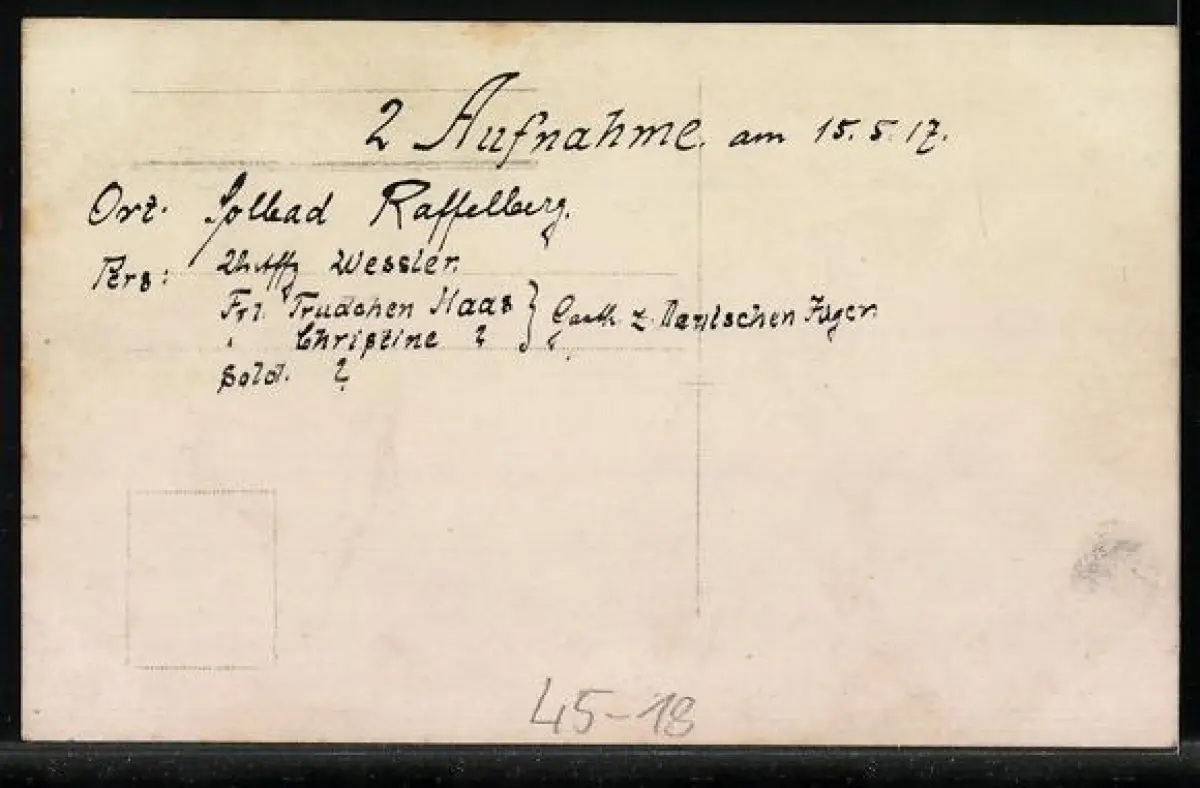 2 Aufnahme. am 15.5.17.
Ort. Solbad Raffelberg.
Pers: Wessler.
Frl. Trudchen Haas } z. Deutschen Jäger
" Christine ?
Sold. ?
45-18